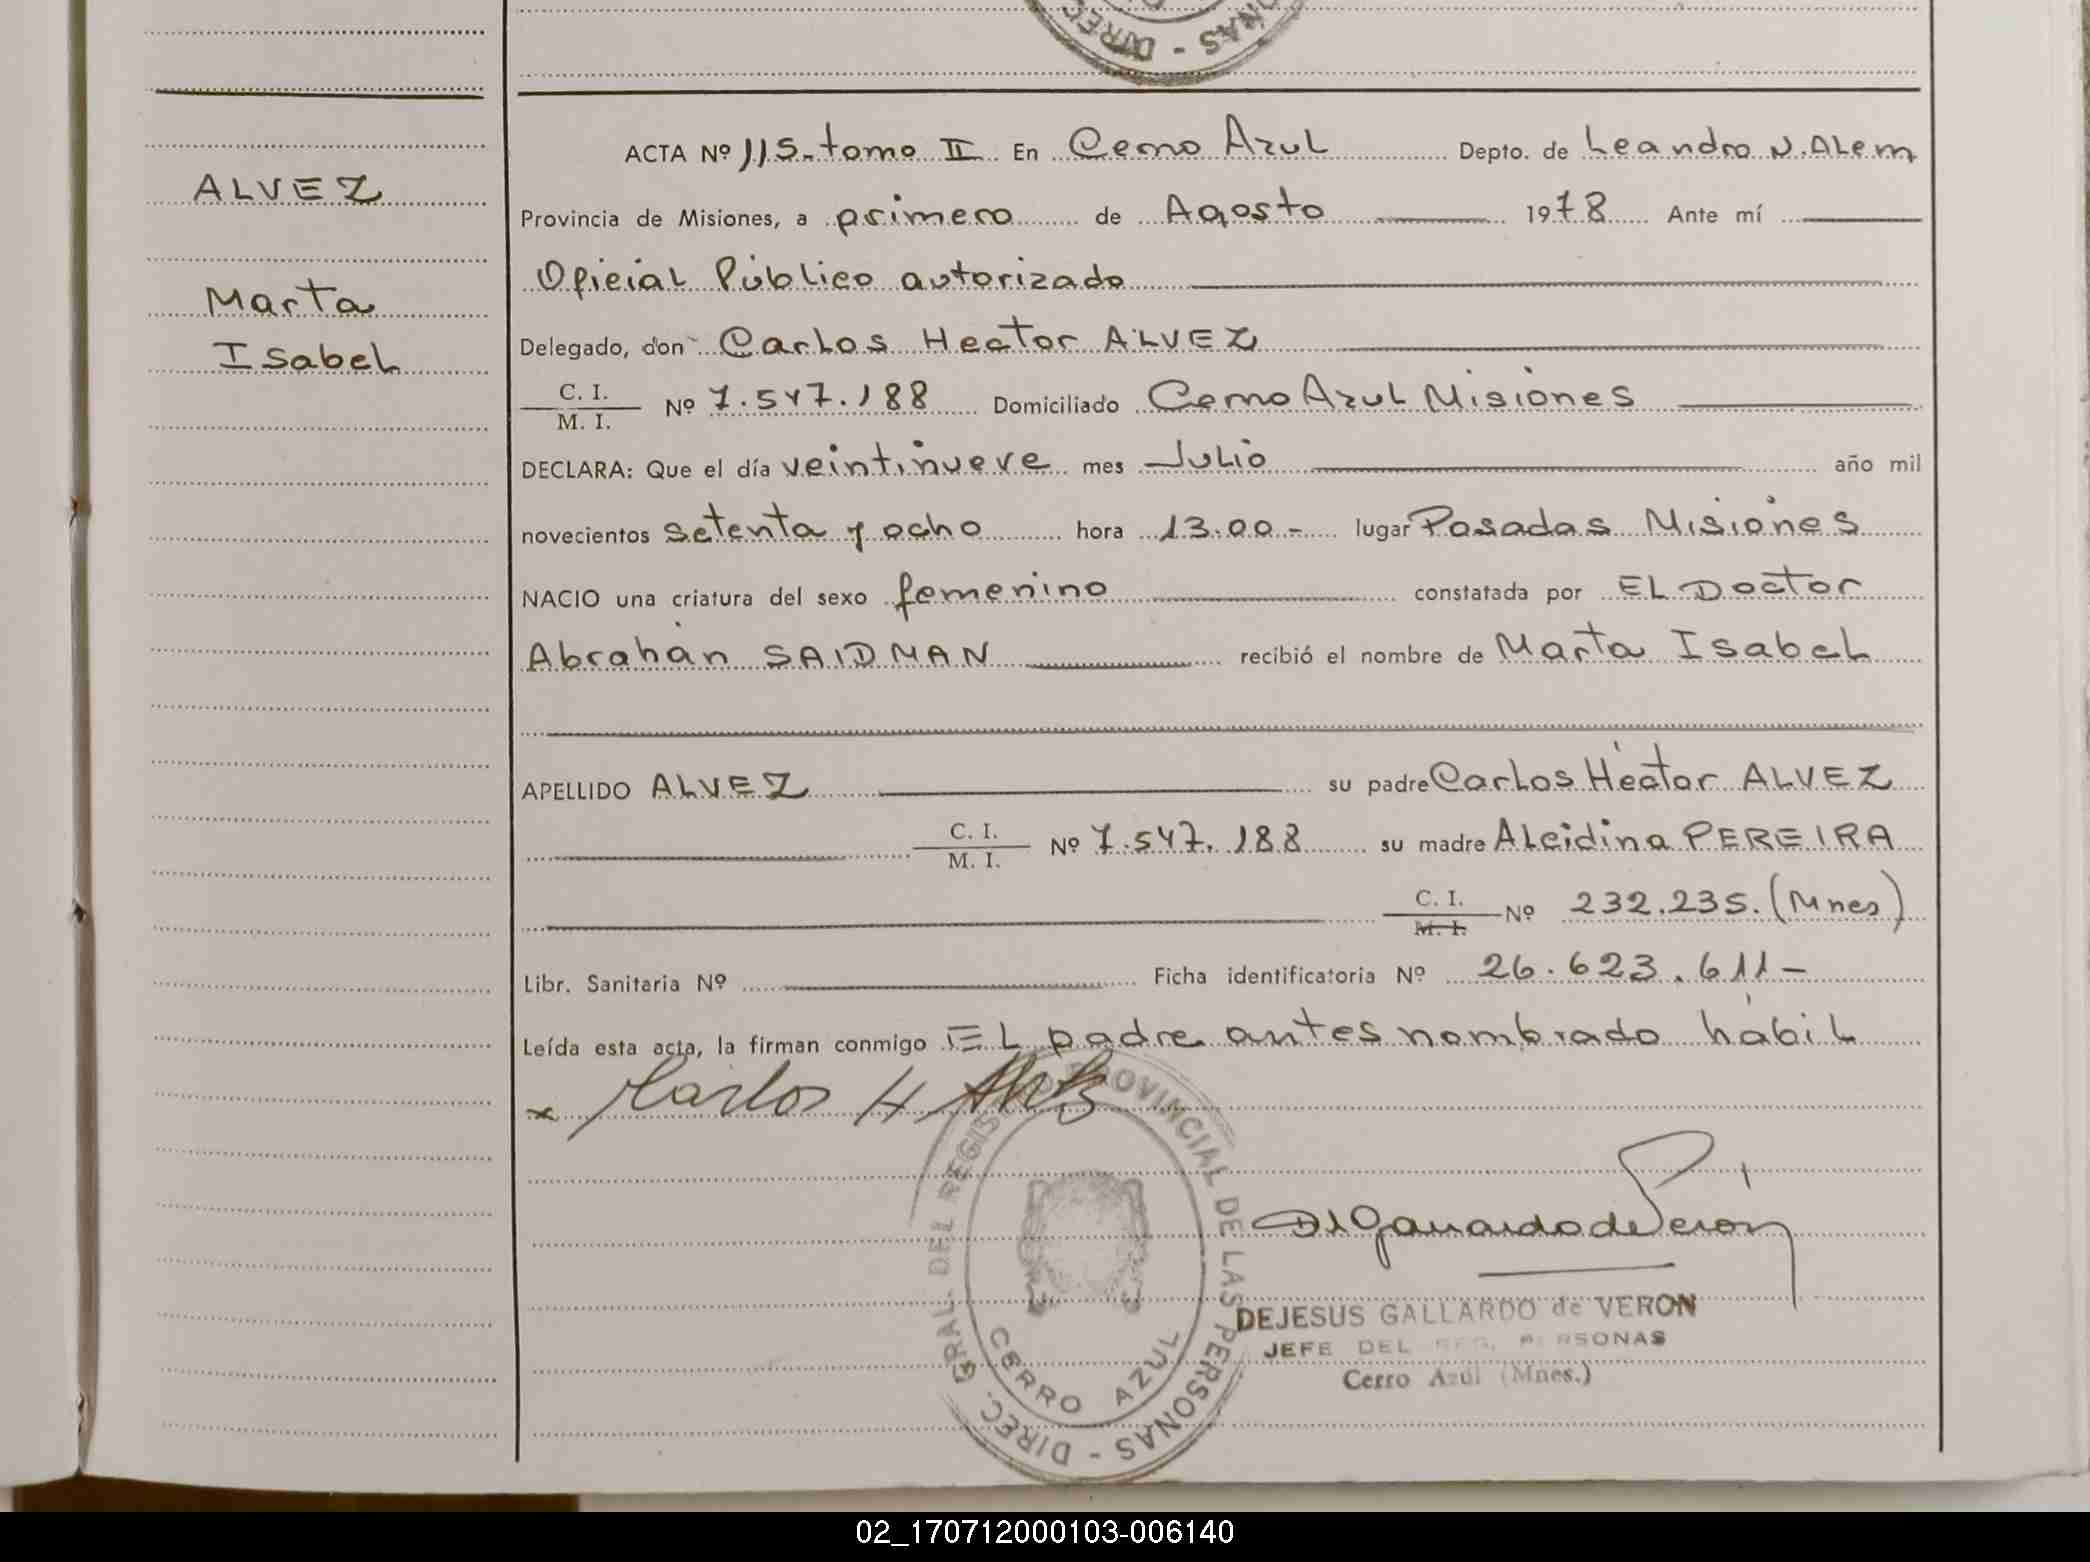 ONAS - DIREC
ALVEZ
Marta
Isabel
ACTA Nº 115- tomo II En Cerro Azul Depto. de Leandro N. Alem
Provincia de Misiones, a primero de Agosto 1978 Ante mí
Oficial Público autorizado
Delegado, don Carlos Hector ALVEZ
C. I.
M. I.
Nº 7.547.188 Domiciliado Cerro Azul Misiones
DECLARA: Que el día veintinueve mes Julio año mil
novecientos setenta y ocho hora 13.00.- lugar Posadas Misiones
NACIO una criatura del sexo femenino constatada por EL Doctor
Abrahán SAIDMAN recibió el nombre de Marta Isabel
APELLIDO ALVEZ su padre Carlos Héctor ALVEZ
C. I.
M. I.
Nº 7.547.188 su madre Alcidina PEREIRA
C. I.
M. I.
Nº 232.235.(Mnes)
Libr. Sanitaria Nº Ficha identificatoria Nº 26.623.611-
Leída esta acta, la firman conmigo EL padre antes nombrado hábil
x Carlos H Alvez
DIREC. GRAL. DEL REGIS PROVINCIAL DE LAS PERSONAS -
CERRO AZUL
D J Gallardo de Veron
DEJESUS GALLARDO de VERON
JEFE DEL REG. PERSONAS
Cerro Azul (Mnes.)
02_170712000103-006140